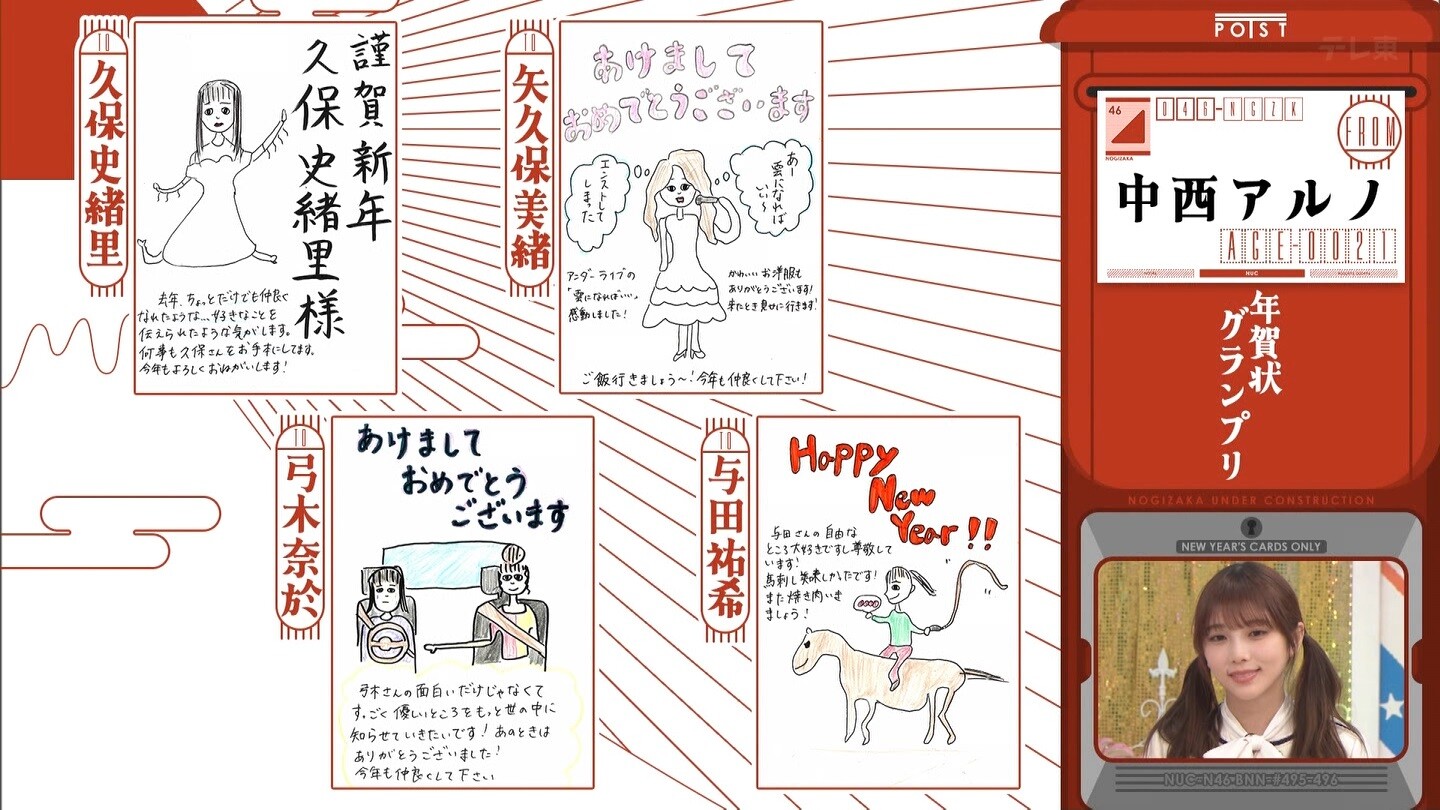 TO
久保史緒里
謹賀新年
久保史緒里様
去年、ちょっとだけでも仲良く
なれたような…好きなことを
伝えられたような気がします。
何事も久保さんをお手本にしてます。
今年もよろしくおねがいします!
TO
矢久保美緒
あけまして
おめでとうございます
エンストして
しまった
あー
雲になれば
いい〜
アンダーライブの
「雲になればいい」
感動しました!
かわいいお洋服も
ありがとうございます!
着たとき見せに行きます!
ご飯行きましょう〜!今年も仲良くして下さい!
TO
弓木奈於
あけまして
おめでとう
ございます
弓木さんの面白いだけじゃなくて
すごく優しいところをもっと世の中に
知らせていきたいです!あのときは
ありがとうございました!
今年も仲良くして下さい
TO
与田祐希
Happy
New
Year!!
与田さんの自由な
ところ大好きですし尊敬して
います!
馬刺し美味しかったです!
また焼き肉いき
ましょう!
POST
テレ東
46
NOGIZAKA
046-NGZK
FROM
中西アルノ
AGE-0021
NUC
年賀状
グランプリ
NOGIZAKA UNDER CONSTRUCTION
NEW YEAR'S CARDS ONLY
NUC-N46-BNN-#495-496